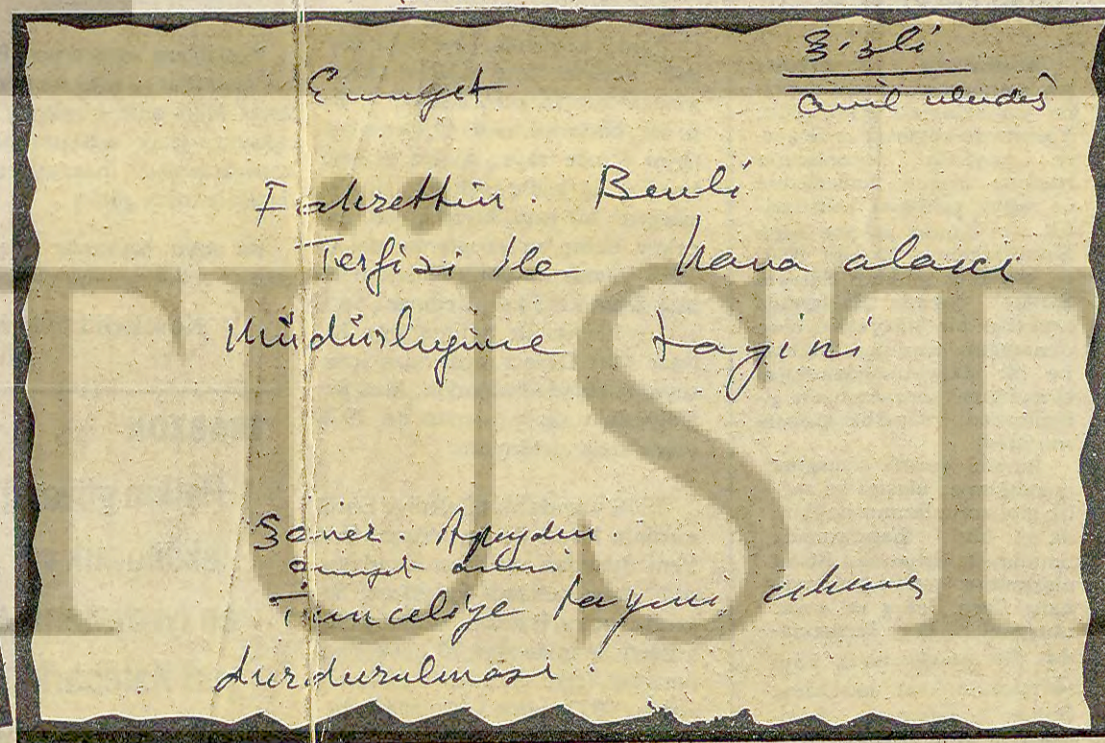 Şişli
Emniyet
Fahrettin. Benli
Terfisi ile hava alanı
Müdürlüğüne tayini
Soner. Apaydın.
Emniyet amiri
Tunceliye tayini çıkmış
durdurulması.
TÜST